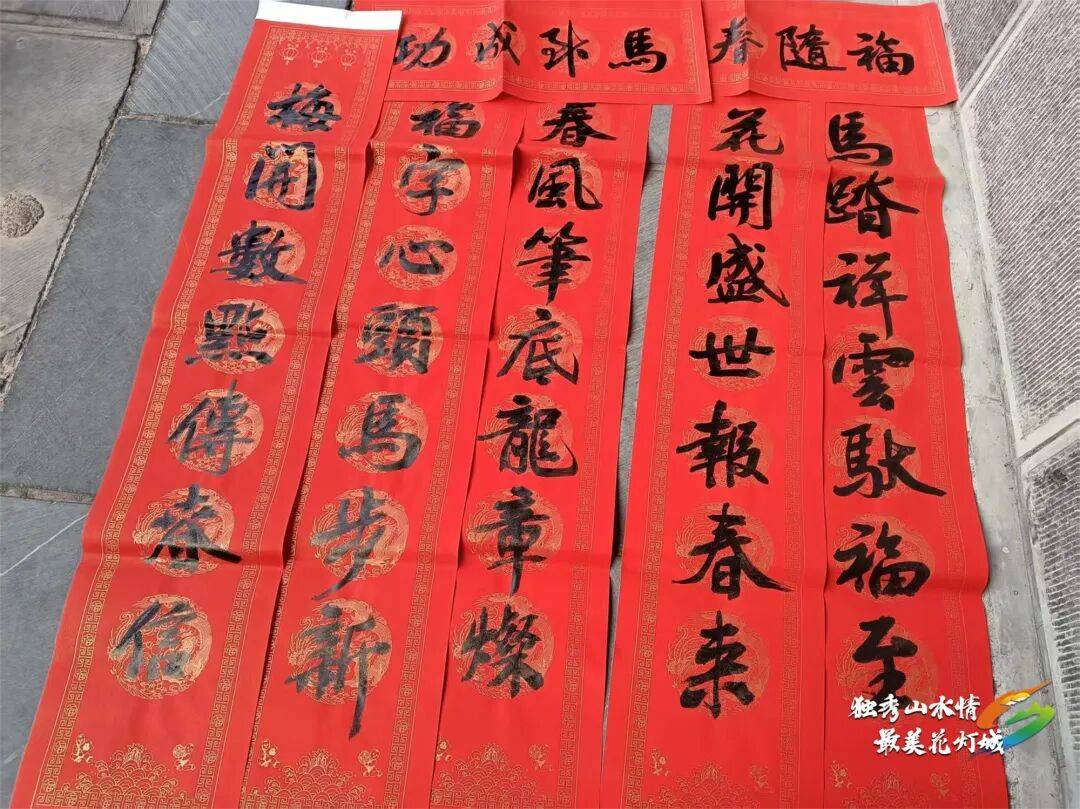 福隨春
馬到成功
馬踏祥雲馱福至
花開盛世報春来
春風筆底龍章燦
福字心頭馬步新
梅開數點傳春信
独秀山水情
最美花灯城